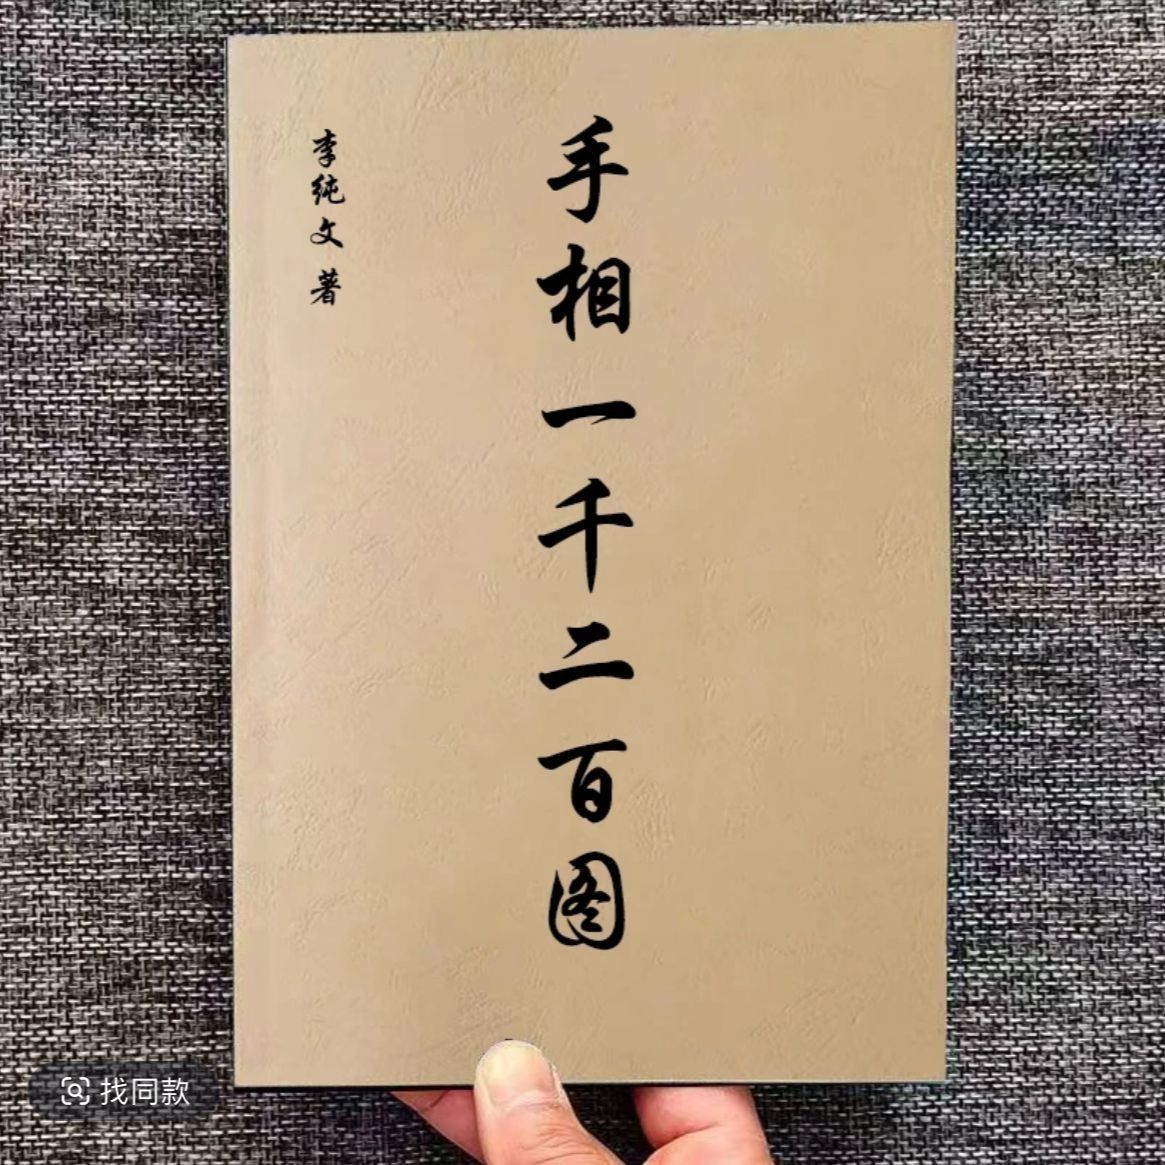 手相一千二百图
李纯文 著
找同款